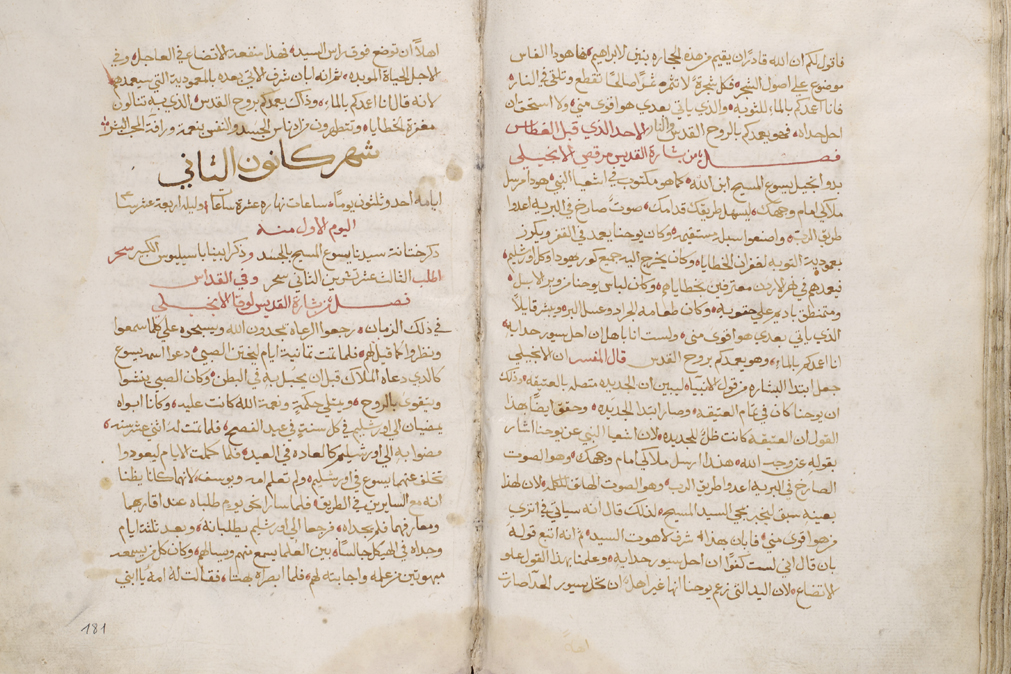 فاقول لكم ان الله قادرًا ان يقيم من هذه الحجاره بنين لابراهيم فها هوذا الفاس
موضوع علي اصول الشجر فكل شجرة لا تثمر ثمرًا صالحًا تقطع وتلقي في النار
فانا اعمدكم بالماء للتوبه والذي ياتي بعدي هو اقوي مني ولا استحق ان
احل حداه فهو يعمدكم بالروح القدس والنار الاحد الذي قبل الغطاس
فصل من بشارة القديس مرقص الانجيلي
بدو انجيل يسوع المسيح ابن الله كما هو مكتوب في اشعيا النبي هوذا مرسل
ملاكي امام وجهك ليسهل طريقك قدامك صوت صارخ في البريه اعدوا
طريق الرب واصنعوا سبله مستقيمه وكان يوحنا يعمد في القفر ويكرز
بمعودية التوبه لغفران الخطايا وكان يخرج اليه جميع كور يهودا وكل اورشليم
فيعمدهم في نهر الاردن معترفين بخطاياهم وكان لباس يوحنا من وبر الابل
ومتمنطق باديم علي حقويه وكان طعامه الجراد وعسل البر ويبشر قايلاً
الذي ياتي بعدي هو اقوي مني ولست انا باهل ان احل سيور حدايه
انا اعمدكم بالماء وهو يعمدكم بروح القدس قال المفسر ان الانجيلي
جعل ابتدا البشاره من قول الانبياء ليبين ان الجديده متصله بالعتيقه وذلك
ان يوحنا كان في تمام العتيقه وصار ابتدا الجديده وحقق ايضًا بهذا
القول ان العتيقه كانت ظل للجديده لان اشعيا النبي عن يوحنا اشار
بقوله عن وجيه الله هنذا ارسل ملاكي امام وجهك وهو الصوت
الصارخ في البريه اعدوا طريق الرب وهو الصوت الهاتف للكل لان لهذا
بعينه سبق ليخبر بمجي السيد المسيح لذلك قال انه سياتي في اثري
من هو اقوي مني فابان بهذا شرف لاهوت السيد ثم انه اتبع قوله
بان قال اني لست كفوًا ان احل سيور حدايه وعلمنا بهذا القول علو
الاتضاع لان اليد التي زعم يوحنا انها غير اهلاً ان تحل سيور الحدا صارت
اهلاً ان توضع فوق راس السيد فهذا منفعة الاتضاع في العاجل وفي
الاجل الحياة الموبده ثم انه ابان شرف الاتي بعده بالمعودية التي سيعمدها
لانه قال انا اعمدكم بالماء وذاك يعمدكم بروح القدس الذي به تنالون
مغفرة الخطايا وتتطهرون من ادناس الجسد والنفس بنعمة ورافة
شهر كانون الثاني
ايامه احد وثلثون يومًا ساعات نهاره عشرة ساعات وليله اربعة عشر ساعه
اليوم الاول منه
ذكر ختانة سيدنا يسوع المسيح بالجسد وذكر ابينا باسيليوس الكبير سحر
اطلب الثالث عشر تشرين الثاني سحر وفي القداس
فصل من بشارة القديس لوقا الانجيلي
في ذلك الزمان رجعوا الرعاة يمجدون الله ويسبحوه علي كلما سمعوا
ونظروا كما قيل لهم فلما تمت ثمانية ايام ليختن الصبي دعوا اسمه يسوع
كالذي دعاه الملاك قبل ان يحبل به في البطن وكان الصبي ينشوا
ويتقوي بالروح ويمتلي حكمة ونعمة الله كانت عليه وكانا ابواه
يمضيان الي اورشليم في كل سنة في عيد الفصح فلما تمت له اثني عشر سنه
مضوا به الي اورشليم كالعاده في العيد فلما كملت الايام ليعودوا
تخلف عنهما يسوع في اورشليم ولم تعلم امه ويوسف لانهما كانا يظنا
انه مع السايرين في الطريق فلما سارا نحو يوم طلباه عند اقاربهما
ومعارفهما فلم يجداه فرجعا الي اورشليم يطلبانه وبعد ثلثة ايام
وجداه في الهيكل جالسًا بين العلما يسمع منهم ويسالهم وكان كل من يسمعه
مبهوتين من علمه واجابته لهم فلما ابصراه بهتا فقالت له امه يا ابني
181